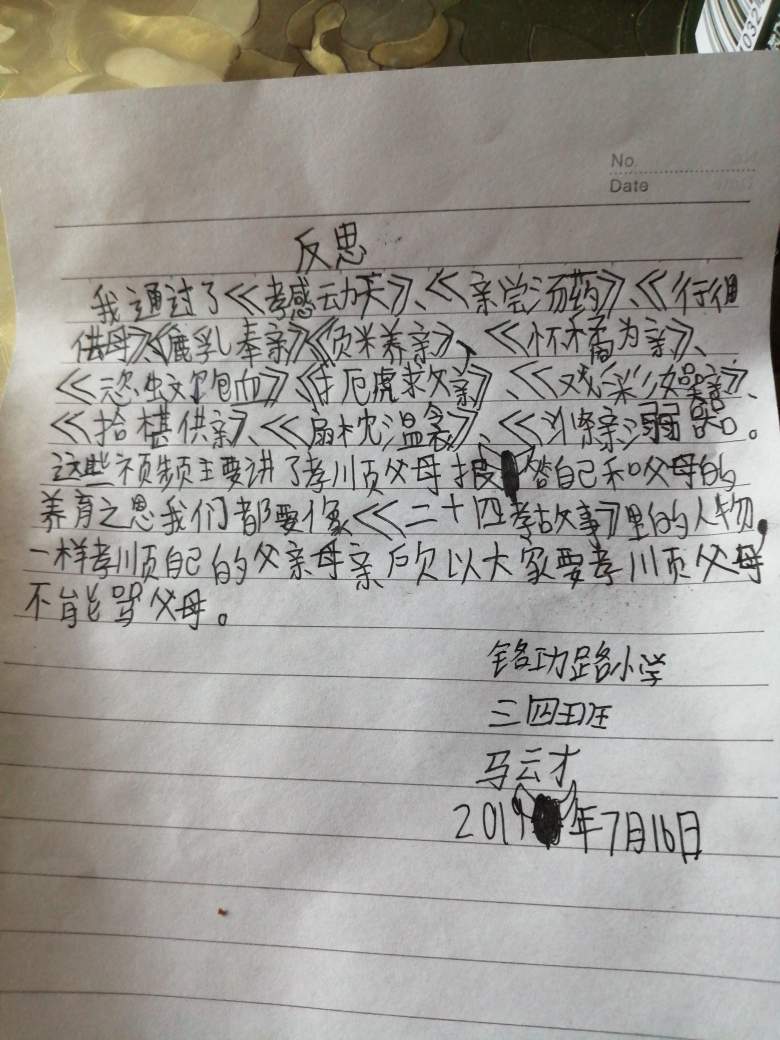 No.
Date
反思
我通过了《孝感动天》、《亲尝汤药》、《行佣
供母》《鹿乳奉亲》《负米养亲》、《怀橘为亲》、
《恣蚊饱血》《扼虎求父亲》、《戏彩
《拾椹供亲》、《扇枕温衾》、《涤亲溺器》。
这些视频主要讲了孝顺父母报答自己和父母的
养育之恩我们都要像《二十四孝故事》里的人物,
一样孝顺自己的父亲母亲所以大家要孝顺父母
不能骂父母。
铭功路小学
三四班
马云才
2019年7月16日